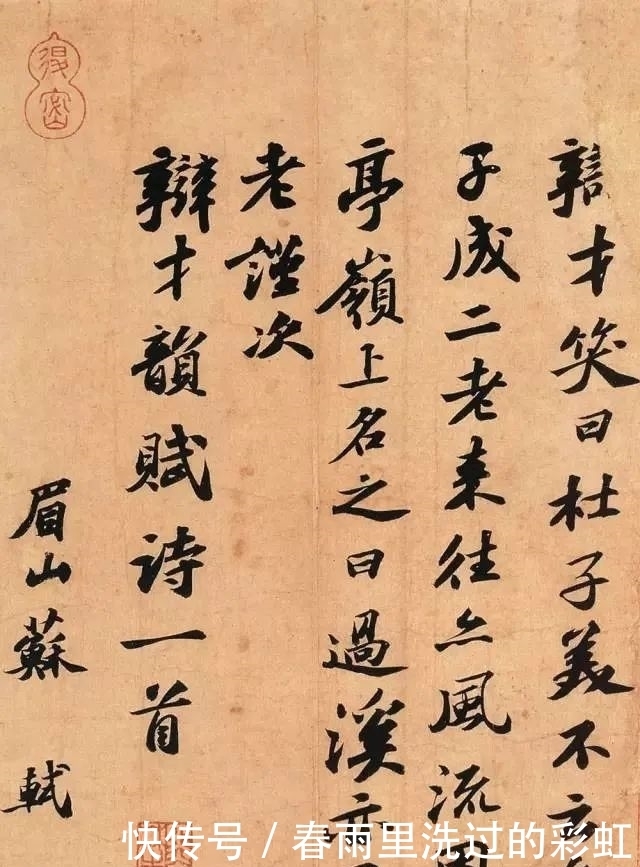 辯才笑曰杜子美不
子成二老来往亦風流
亭嶺上名之曰過溪亦
老謹次
辯才韻賦诗一首
眉山蘇軾
快传号 / 春雨里洗过的彩虹